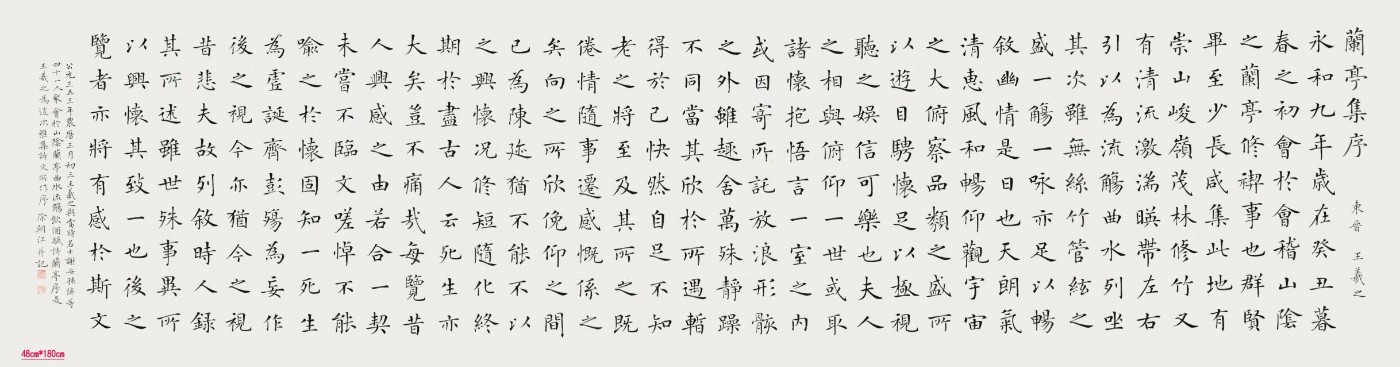 蘭亭集序 東晉 王羲之
永和九年歲在癸丑暮
春之初會於會稽山陰
之蘭亭修禊事也群賢
畢至少長咸集此地有
崇山峻嶺茂林修竹又
有清流激湍暎帶左右
引以為流觴曲水列坐
其次雖無絲竹管絃之
盛一觴一咏亦足以暢
敘幽情是日也天朗氣
清惠風和暢仰觀宇宙
之大俯察品類之盛所
以遊目騁懷足以極視
聽之娛信可樂也夫人
之相與俯仰一世或取
諸懷抱悟言一室之內
或因寄所託放浪形骸
之外雖趣舍萬殊靜躁
不同當其欣於所遇暫
得於己快然自足不知
老之將至及其所之既
倦情隨事遷感慨係之
矣向之所欣俛仰之間
已為陳迹猶不能不以
之興懷況修短隨化終
期於盡古人云死生亦
大矣豈不痛哉每覽昔
人興感之由若合一契
未嘗不臨文嗟悼不能
喻之於懷固知一死生
為虛誕齊彭殤為妄作
後之視今亦猶今之視
昔悲夫故列敘時人錄
其所述雖世殊事異所
以興懷其致一也後之
覽者亦將有感於斯文
公元三五三年農曆三月初三王羲之與當時名士謝安孫綽等
四十一人聚會於山陰蘭亭曲水流觴飲酒賦詩蘭亭序是
王羲之為這次雅集詩文寫的序 徐朝江并記
48cm*180cm